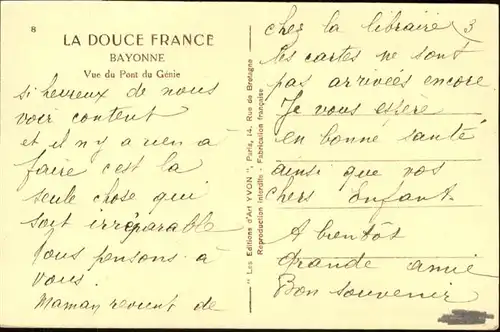 8
LA DOUCE FRANCE
BAYONNE
Vue du Pont du Génie
si heureux de nous
voir content
et il n'y a rien à
faire c'est la
seule chose qui
soit irréparable
Nous pensons à
vous.
Maman revient de
" Les Editions d'Art YVON ", Paris, 14, Rue de Bretagne
Reproduction interdite - Fabrication française
3
chez la libraire
les cartes ne sont
pas arrivées encore
Je vous espère
en bonne santé
ainsi que vos
chers Enfant.
A bientôt
grande amie
Bon souvenir